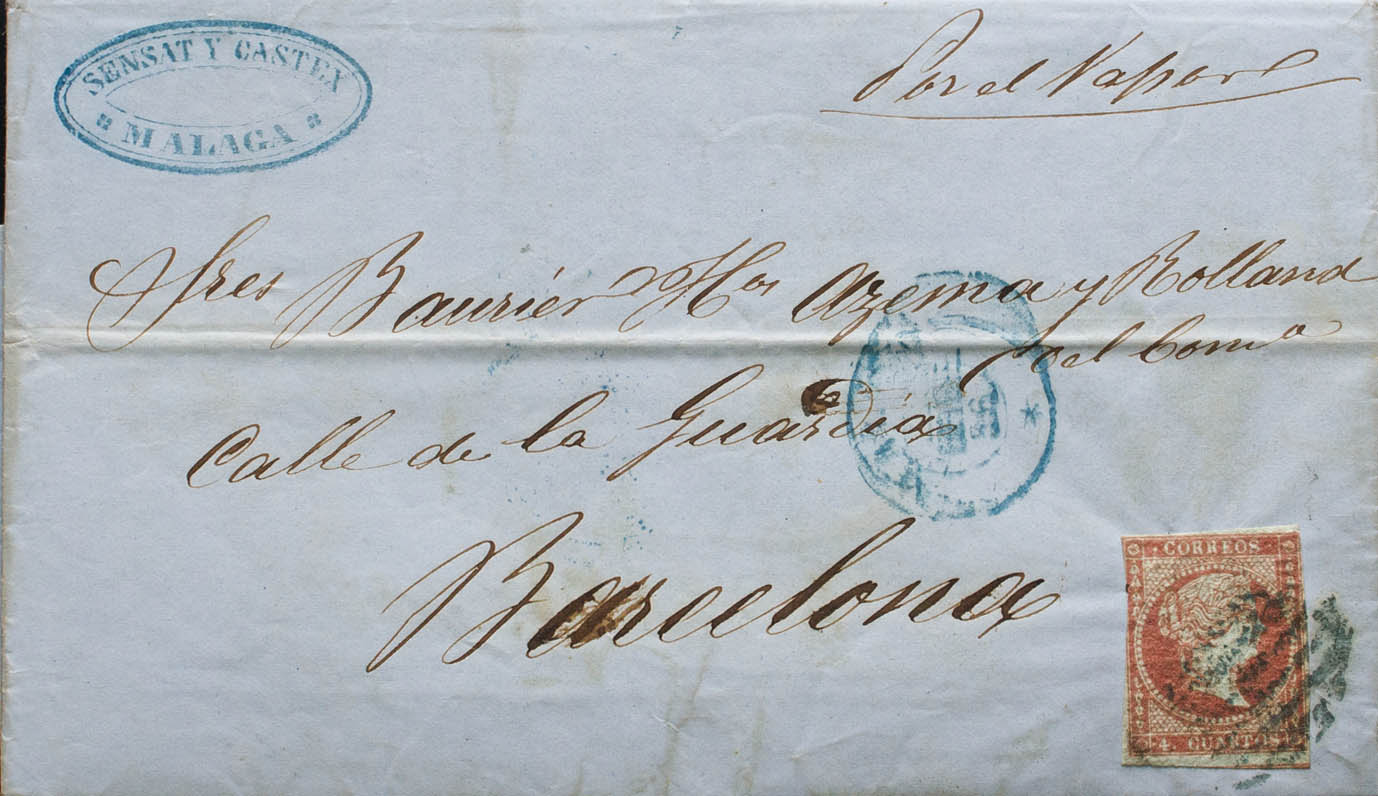 SENSAT Y CASTEX
MALAGA
Por el Vapor
Sres Baurier Hos Azema y Rolland
del Coma
Calle de la Guardia
Barcelona
CORREOS
4 CUARTOS